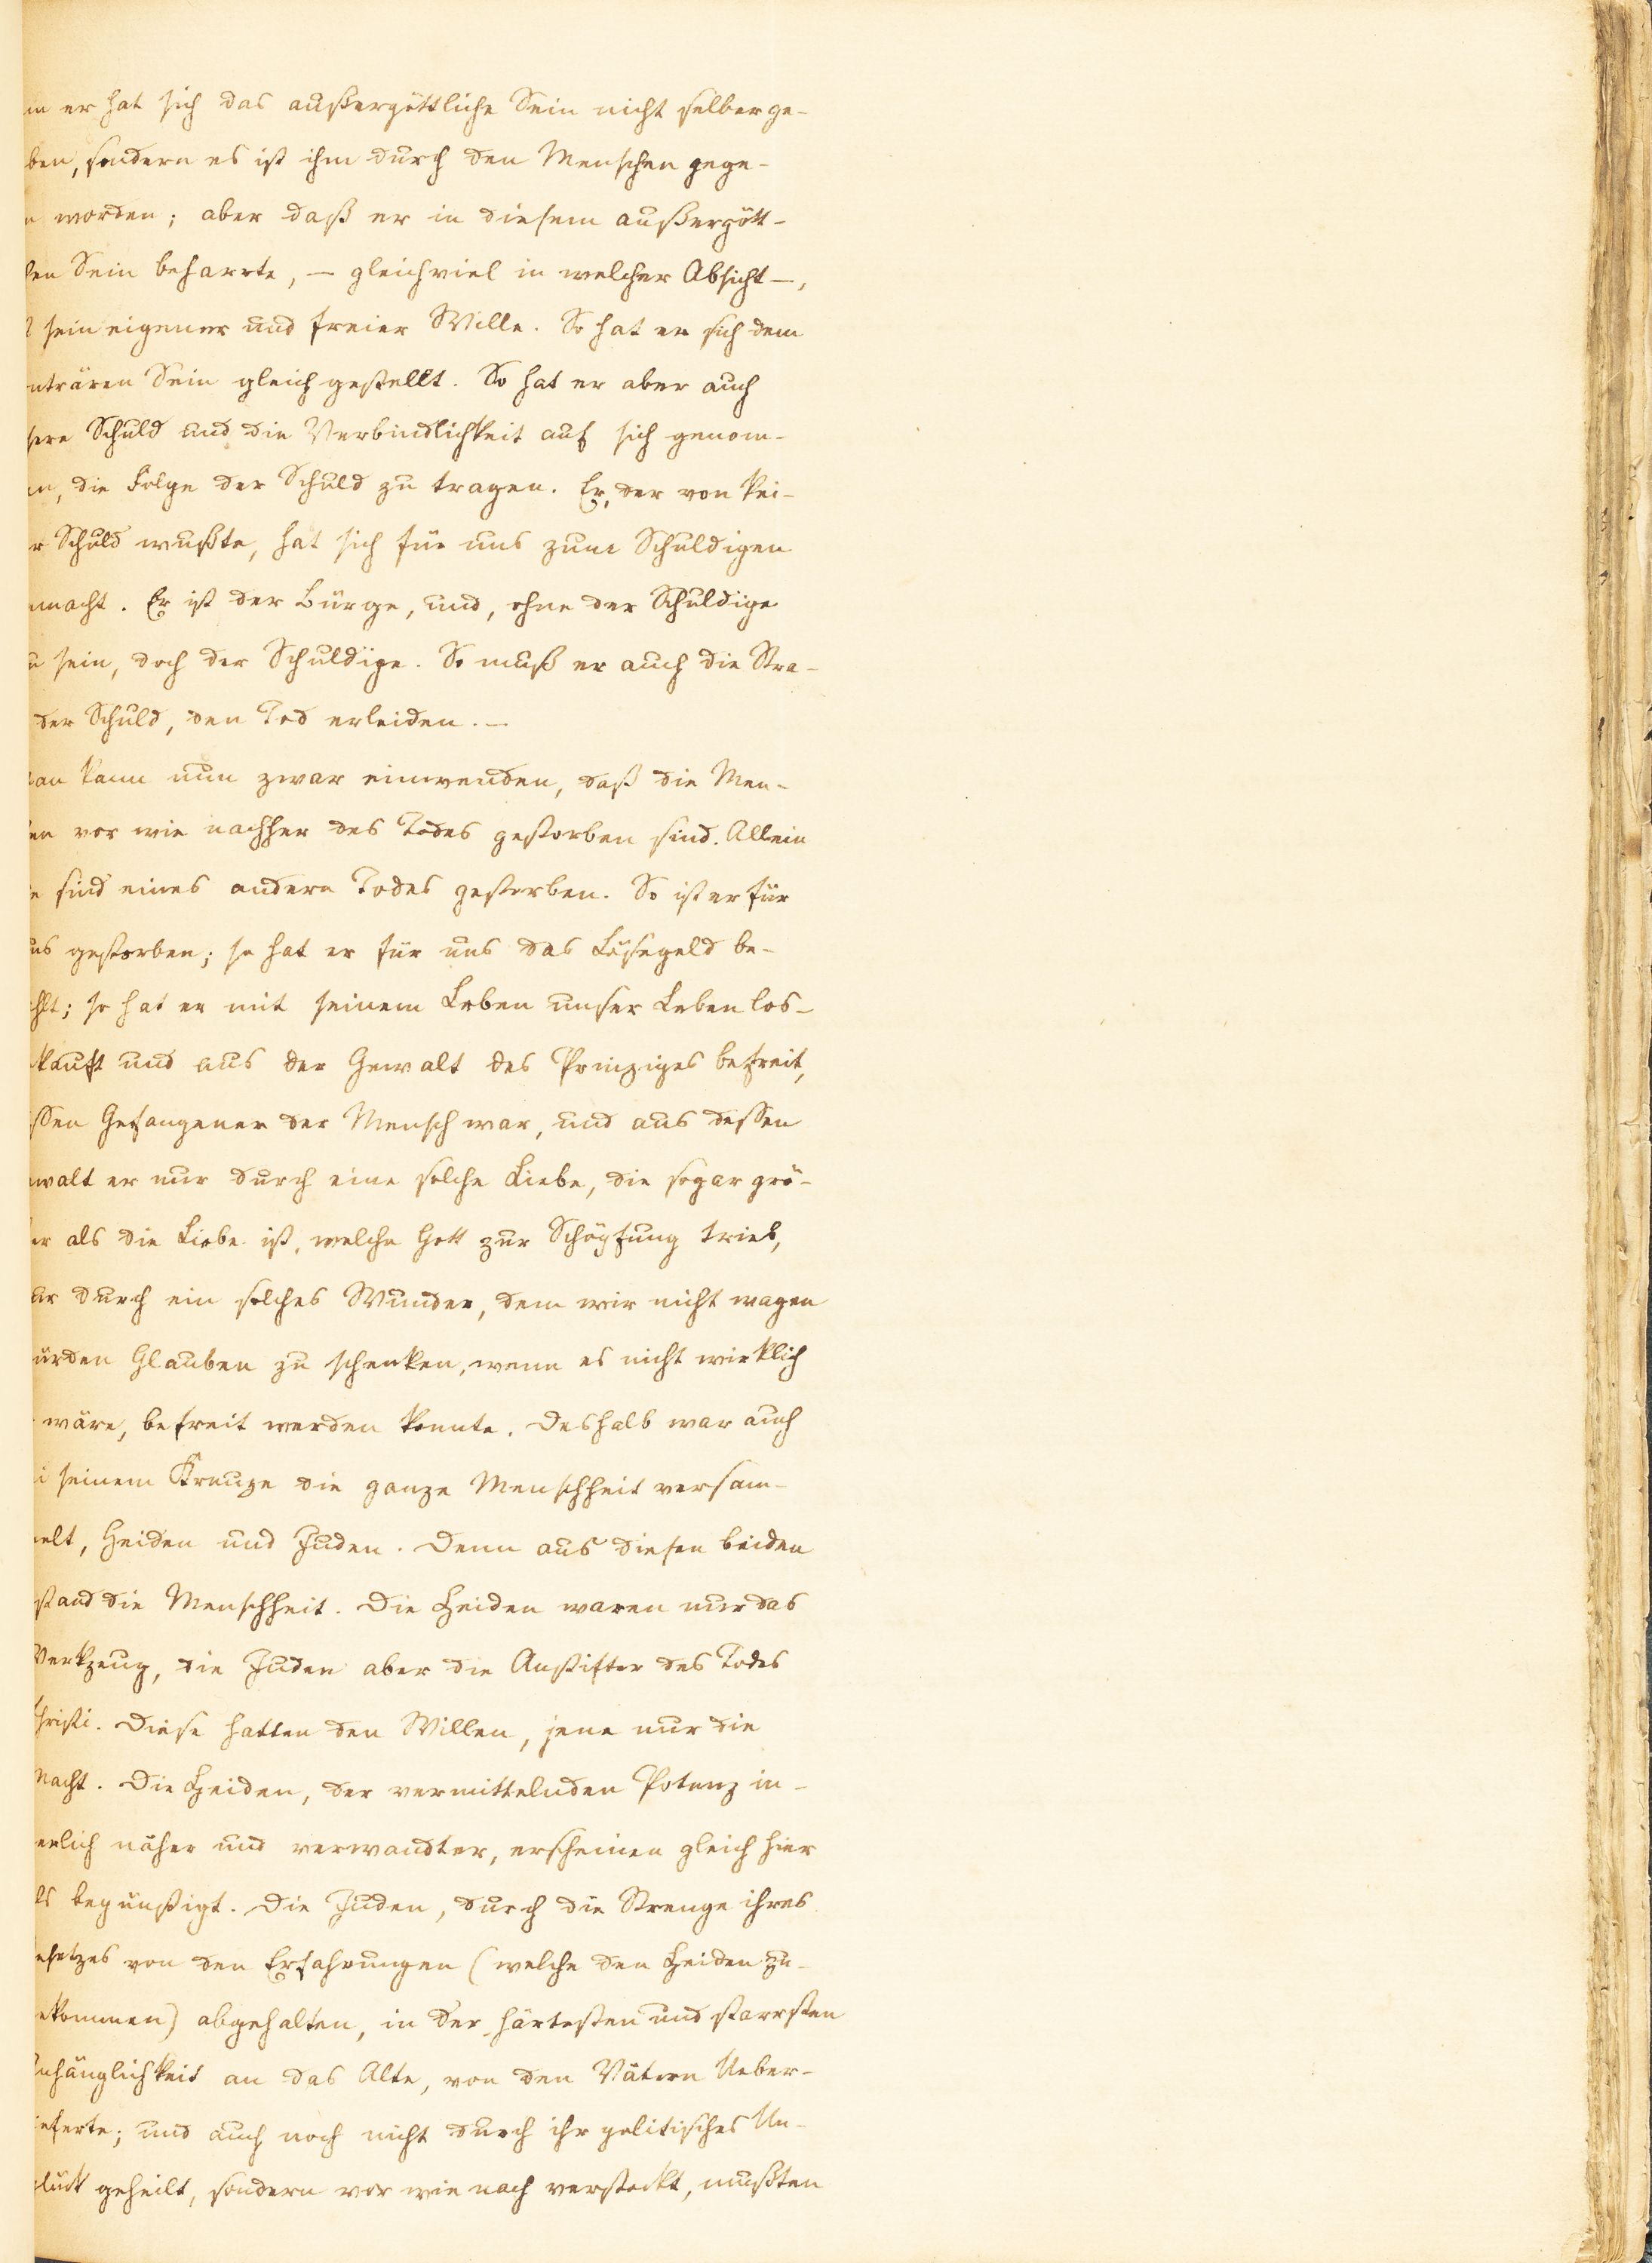 n er hat sich das außergöttliche Sein nicht selber ge-
ben, sondern es ist ihm durch den Menschen gege-
n worden; aber daß er in diesem außergött-
en Sein beharrte, – gleichviel in welcher Absicht –,
sein eigener und freier Wille. So hat er sich dem
nträren Sein gleich gestellt. So hat er aber auch
sere Schuld und die Verbindlichkeit auf sich genom-
en, die Folge der Schuld zu tragen. Er, der von kei-
r Schuld wußte, hat sich für uns zum Schuldigen
macht. Er ist der Bürge, und, ohne der Schuldige
u sein, doch der Schuldige. So muß er auch die Stra-
der Schuld, den Tod erleiden. –
an kann nun zwar einwenden, daß die Men-
en vor wie nachher des Todes gestorben sind. Allein
e sind eines andern Todes gestorben. So ist er für
us gestorben; so hat er für uns das Lösegeld be-
hlt; so hat er mit seinem Leben unser Leben los-
kauft und aus der Gewalt des Prinzipes befreit,
ssen Gefangener der Mensch war, und aus dessen
walt er nur durch eine solche Liebe, die sogar grö-
er als die Liebe ist, welche Gott zur Schöpfung trieb,
ur durch ein solches Wunder, dem wir nicht wagen
ürden Glauben zu schenken, wenn es nicht wirklich
wäre, befreit werden konnte. Deshalb war auch
i seinem Kreuze die ganze Menschheit versam-
elt, Heiden und Juden. Denn aus diesen beiden
stand die Menschheit. Die Heiden waren nur das
Werkzeug, die Juden aber die Anstifter des Todes
Christi. Diese hatten den Willen, jene nur die
Macht. Die Heiden, der vermittelnden Potenz in-
erlich näher und verwandter, erscheinen gleich hier
ls begünstigt. Die Juden, durch die Strenge ihres
esetzes von den Erfahrungen (welche den Heiden zu-
ekommen) abgehalten, in der härtesten und starrsten
nhänglichkeit an das Alte, von den Vätern Ueber-
ieferte; und auch noch nicht durch ihr politisches Un-
lück geheilt, sondern vor wie nach verstockt, mußten